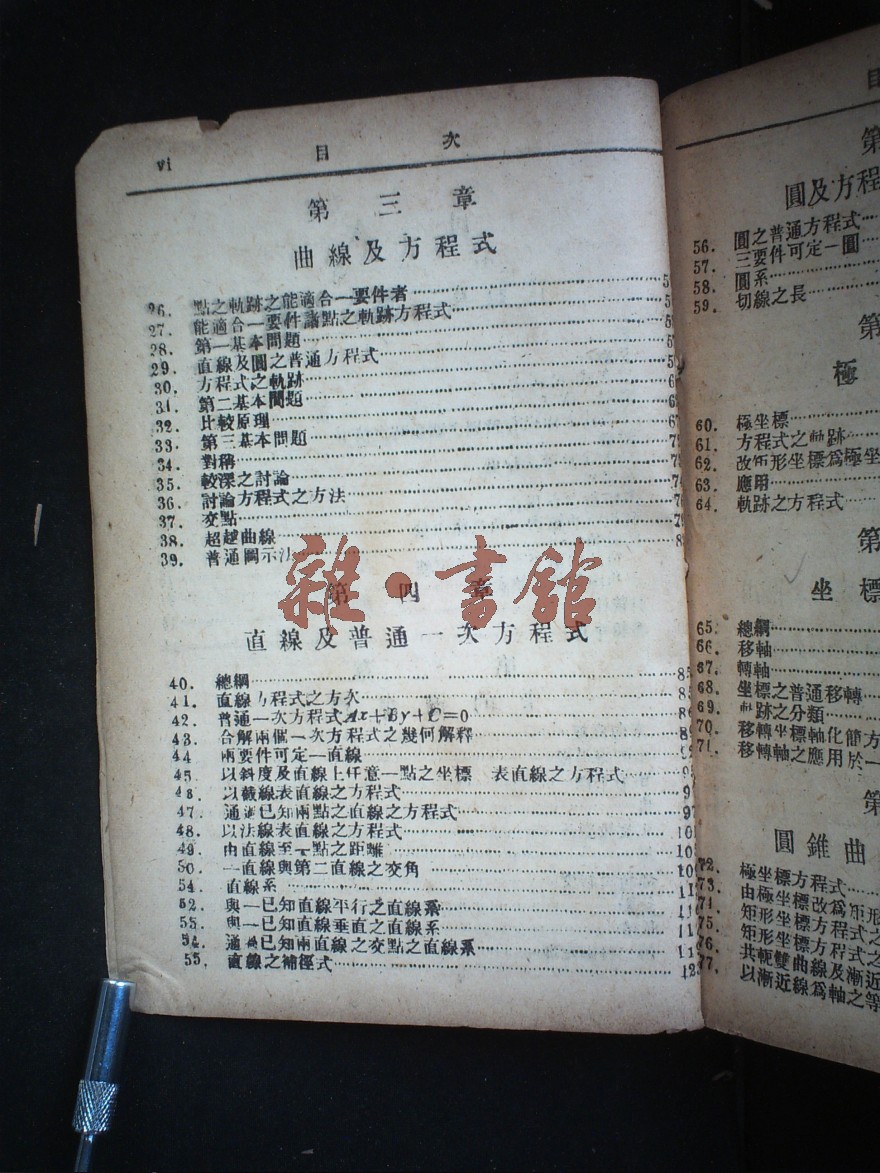 vi 目 次
第 三 章
曲線及方程式
26. 點之軌跡之能適合一要件者 5
27. 能適合一要件諸點之軌跡方程式 5
28. 第一基本問題 5
29. 直線及圓之普通方程式 5
30. 方程式之軌跡 6
31. 第二基本問題 6
32. 比較原理 67
33. 第三基本問題 7
34. 對稱 7
35. 較深之討論 7
36. 討論方程式之方法 7
37. 交點 7
38. 超越曲線 8
39. 普通圖示法
第 四 章
雜·書館
直線及普通一次方程式
40. 總綱 85
41. 直線方程式之方次 85
42. 普通一次方程式Ax+By+C=0 86
43. 合解兩個一次方程式之幾何解釋 8
44 兩要件可定一直線 92
45. 以斜度及直線上任意一點之坐標 表直線之方程式 95
46. 以截線表直線之方程式 9
47. 通過已知兩點之直線之方程式 97
48. 以法線表直線之方程式 10
49. 由直線至一點之距離 10
50. 一直線與第二直線之交角 109
51. 直線系 11
52. 與一已知直線平行之直線系 11
53. 與一已知直線垂直之直線系 11
54. 通過已知兩直線之交點之直線系 11
55. 直線之補徑式 123
目
第
圓及方程
56. 圓之普通方程式
57. 三要件可定一圓
58. 圓系
59. 切線之長
第
極
60. 極坐標
61. 方程式之軌跡
62. 改矩形坐標爲極坐
63. 應用
64. 軌跡之方程式
第
坐 標
65. 總綱
66. 移軸
67. 轉軸
68. 坐標之普通移轉
69. 軌跡之分類
70. 移轉坐標軸化簡方
71. 移轉軸之應用於一
第
圓錐曲
72. 極坐標方程式
73. 由極坐標改爲矩形
74. 矩形坐標方程式之
75. 矩形坐標方程式之
76. 共軛雙曲線及漸近
77. 以漸近線爲軸之等